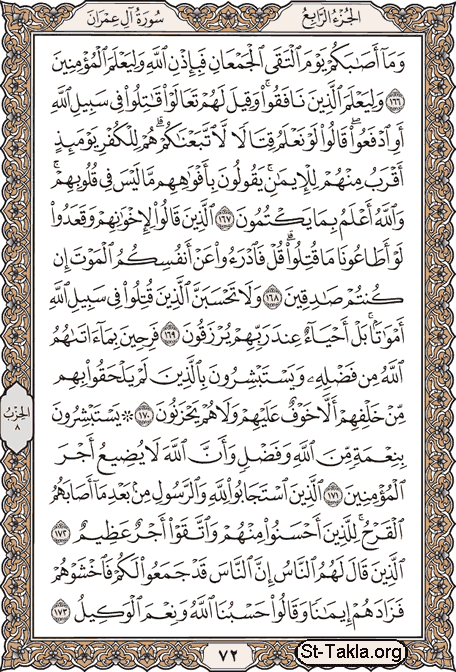 سُورَةُ آلِ عِمْرَانَ
الجُزْءُ الرَّابِعُ
وَمَآ أَصَٰبَكُمۡ يَوۡمَ ٱلۡتَقَى ٱلۡجَمۡعَانِ فَبِإِذۡنِ ٱللَّهِ وَلِيَعۡلَمَ ٱلۡمُؤۡمِنِينَ
١٦٦ وَلِيَعۡلَمَ ٱلَّذِينَ نَافَقُواْۚ وَقِيلَ لَهُمۡ تَعَالَوۡاْ قَٰتِلُواْ فِي سَبِيلِ ٱللَّهِ
أَوِ ٱدۡفَعُواْۖ قَالُواْ لَوۡ نَعۡلَمُ قِتَالٗا لَّٱتَّبَعۡنَٰكُمۡۗ هُمۡ لِلۡكُفۡرِ يَوۡمَئِذٍ
أَقۡرَبُ مِنۡهُمۡ لِلۡإِيمَٰنِۚ يَقُولُونَ بِأَفۡوَٰهِهِم مَّا لَيۡسَ فِي قُلُوبِهِمۡۚ
وَٱللَّهُ أَعۡلَمُ بِمَا يَكۡتُمُونَ ١٦٧ ٱلَّذِينَ قَالُواْ لِإِخۡوَٰنِهِمۡ وَقَعَدُواْ
لَوۡ أَطَاعُونَا مَا قُتِلُواْۗ قُلۡ فَٱدۡرَءُواْ عَنۡ أَنفُسِكُمُ ٱلۡمَوۡتَ إِن
كُنتُمۡ صَٰدِقِينَ ١٦٨ وَلَا تَحۡسَبَنَّ ٱلَّذِينَ قُتِلُواْ فِي سَبِيلِ ٱللَّهِ
أَمۡوَٰتَۢاۚ بَلۡ أَحۡيَآءٌ عِندَ رَبِّهِمۡ يُرۡزَقُونَ ١٦٩ فَرِحِينَ بِمَآ ءَاتَىٰهُمُ
ٱللَّهُ مِن فَضۡلِهِۦ وَيَسۡتَبۡشِرُونَ بِٱلَّذِينَ لَمۡ يَلۡحَقُواْ بِهِم
مِّنۡ خَلۡفِهِمۡ أَلَّا خَوۡفٌ عَلَيۡهِمۡ وَلَا هُمۡ يَحۡزَنُونَ ١٧٠ ۞ يَسۡتَبۡشِرُونَ
بِنِعۡمَةٖ مِّنَ ٱللَّهِ وَفَضۡلٖ وَأَنَّ ٱللَّهَ لَا يُضِيعُ أَجۡرَ
ٱلۡمُؤۡمِنِينَ ١٧١ ٱلَّذِينَ ٱسۡتَجَابُواْ لِلَّهِ وَٱلرَّسُولِ مِنۢ بَعۡدِ مَآ أَصَابَهُمُ
ٱلۡقَرۡحُۚ لِلَّذِينَ أَحۡسَنُواْ مِنۡهُمۡ وَٱتَّقَوۡاْ أَجۡرٌ عَظِيمٌ ١٧٢
ٱلَّذِينَ قَالَ لَهُمُ ٱلنَّاسُ إِنَّ ٱلنَّاسَ قَدۡ جَمَعُواْ لَكُمۡ فَٱخۡشَوۡهُمۡ
فَزَادَهُمۡ إِيمَٰنٗا وَقَالُواْ حَسۡبُنَا ٱللَّهُ وَنِعۡمَ ٱلۡوَكِيلُ ١٧٣
الحِزْبُ
٨
٧٢
St-Takla.org